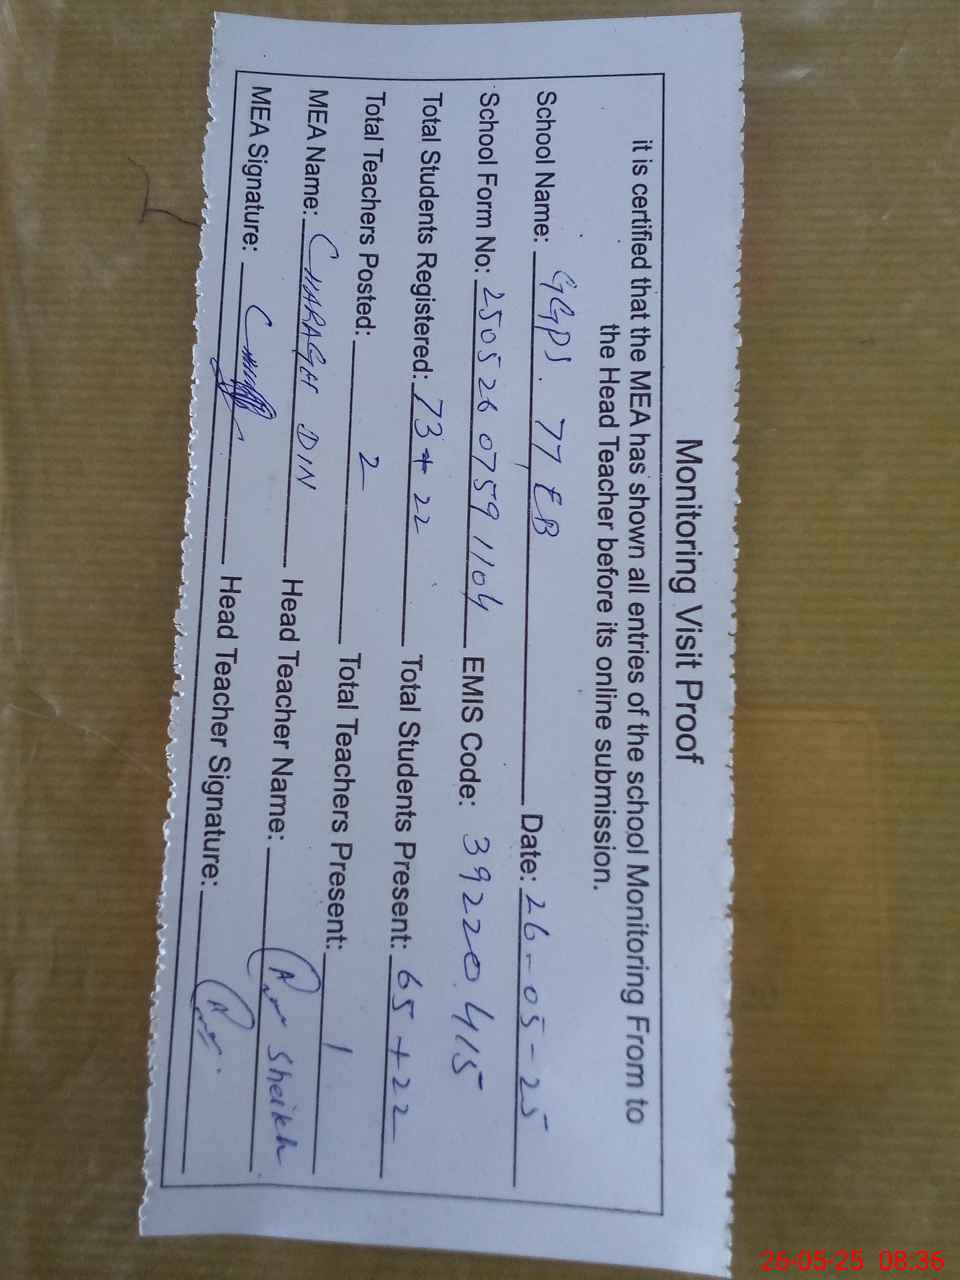 Monitoring Visit Proof
it is certified that the MEA has shown all entries of the school Monitoring From to
the Head Teacher before its online submission.
School Name: GGPS. 77 EB Date: 26-05-25
School Form No: 250526 0759 1104 EMIS Code: 39220415
Total Students Registered: 73 + 22 Total Students Present: 65 + 22
Total Teachers Posted: 2 Total Teachers Present: 1
MEA Name: CHARAGH DIN Head Teacher Name: Sheikh
MEA Signature: Head Teacher Signature:
26-05-25 08:36